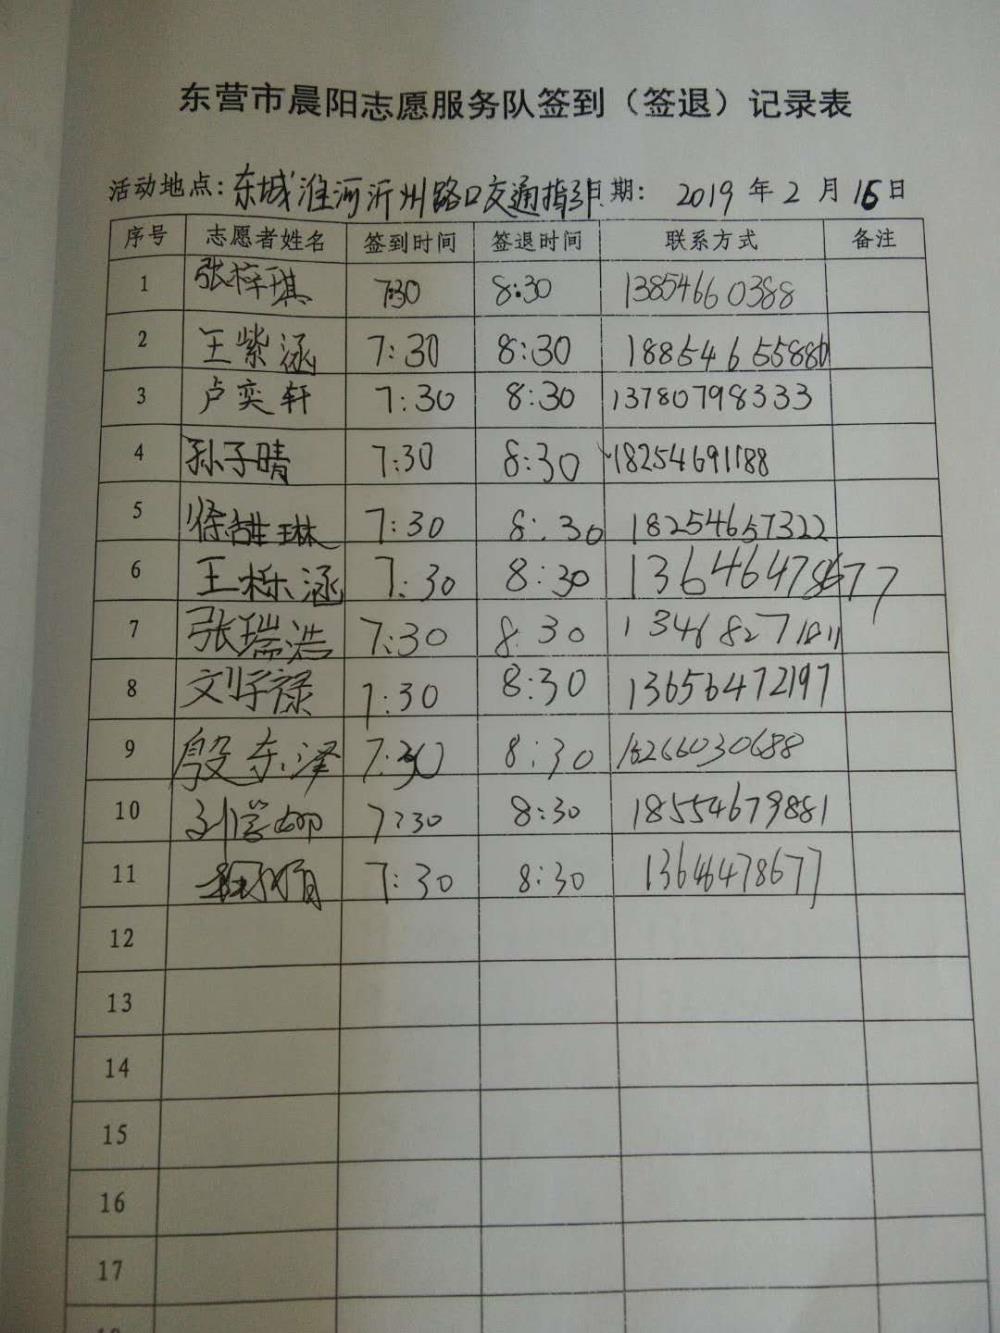 东营市晨阳志愿服务队签到（签退）记录表
活动地点：东城淮河沂州路口交通指引 日期： 2019 年 2 月 16 日
序号 志愿者姓名 签到时间 签退时间 联系方式 备注
1 张梓琪 7:30 8:30 13854660388
2 王紫涵 7:30 8:30
3 卢奕轩 7:30 8:30 13780798333
4 孙子晴 7:30 8:30 18254691188
5 7:30 8:30 18254657322
6 王栎涵 7:30 8:30 13646478677
7 张瑞浩 7:30 8:30
8 刘子禄 7:30 8:30 13656472197
9 殷东泽 7:30 8:30
10 7:30 8:30 18554679881
11 7:30 8:30 13646478677
12
13
14
15
16
17